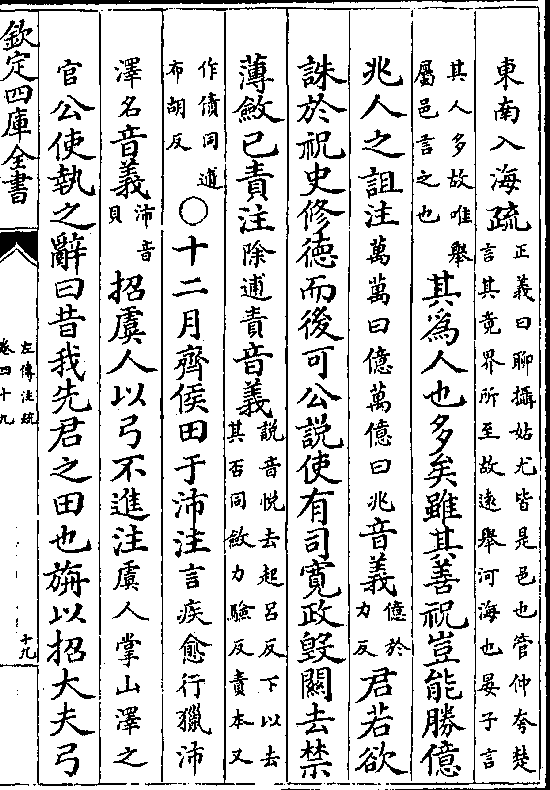 東南入海疏正義曰聊攝姑尤皆是邑也管仲夸楚言其竟界所至故遠舉河海也晏子言
其人多故唯舉屬邑言之也其為人也多矣雖其善祝豈能勝億
兆人之詛注萬萬曰億萬億曰兆音義億於力反君若欲
誅於祝史修徳而後可公說使有司寛政毀關去禁
薄斂已責注除逋責音義說音悅去起呂反下以去其否同斂力驗反責本又
作債同逋布胡反○十二月齊侯田于沛注言疾愈行獵沛
澤名音義沛音貝招虞人以弓不進注虞人掌山澤之
官公使執之辭曰昔我先君之田也旃以招大夫弓
欽定四庫全書
左傳注疏
卷四十九
十九